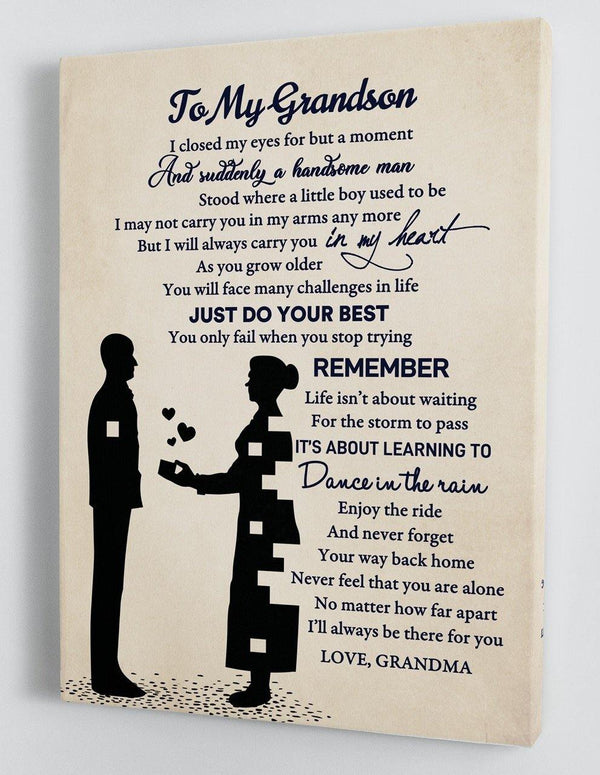 To My Grandson
I closed my eyes for but a moment
And suddenly a handsome man
Stood where a little boy used to be
I may not carry you in my arms any more
But I will always carry you in my heart
As you grow older
You will face many challenges in life
JUST DO YOUR BEST
You only fail when you stop trying
REMEMBER
Life isn't about waiting
For the storm to pass
IT'S ABOUT LEARNING TO
Dance in the rain
Enjoy the ride
And never forget
Your way back home
Never feel that you are alone
No matter how far apart
I'll always be there for you
LOVE, GRANDMA